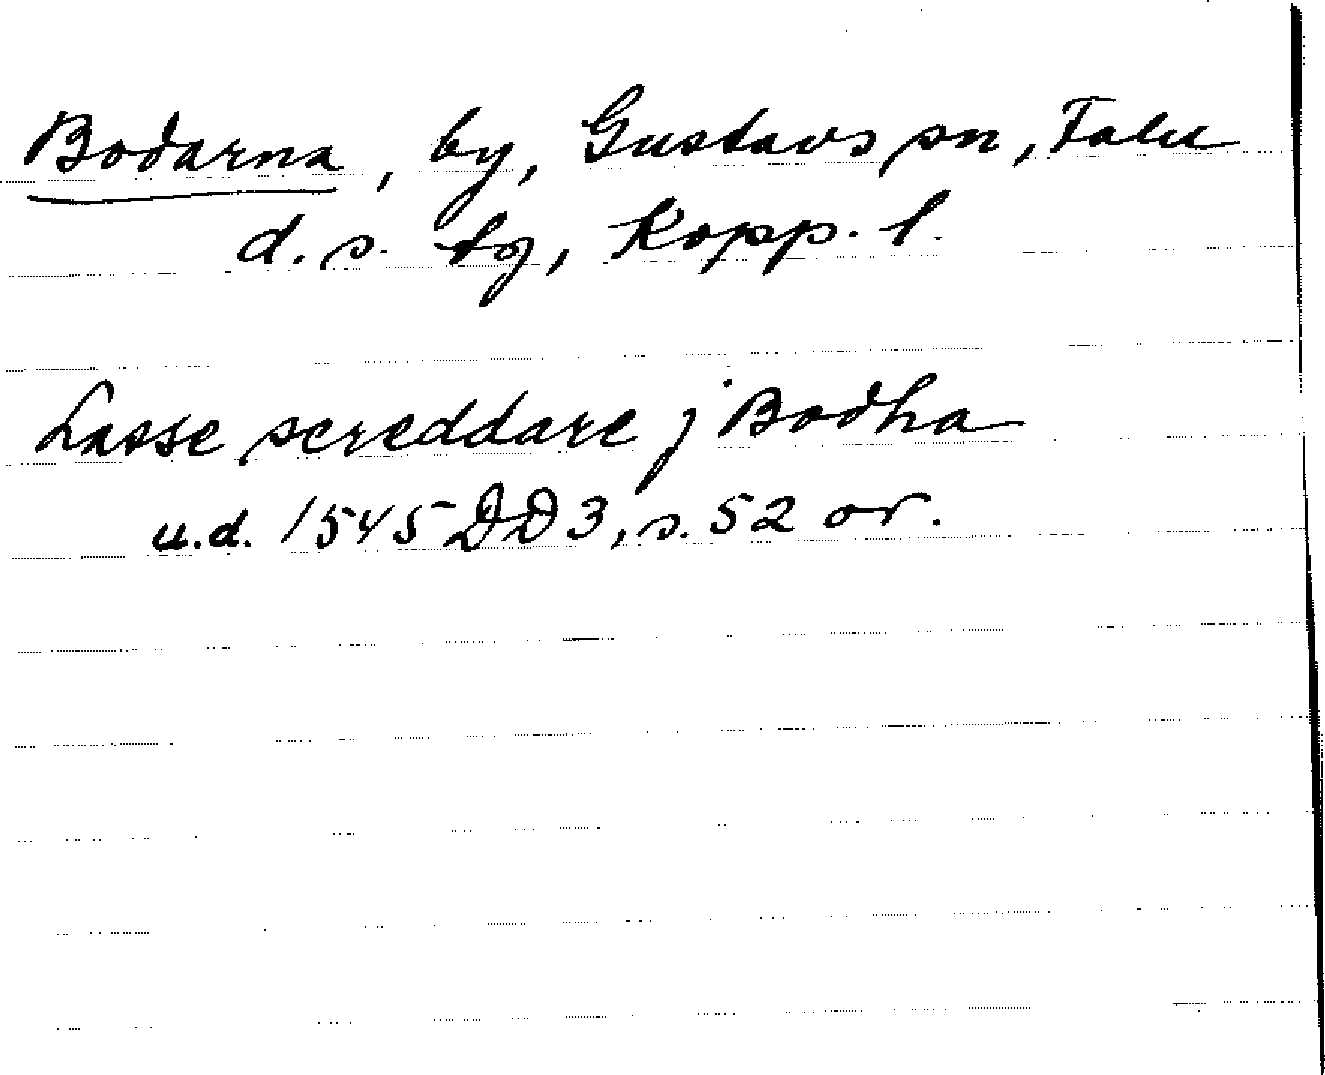 Bodarna, by, Gustavs sn, Falu
d. s. tg, Kopp. l.
Lasse screddare j Bodha
u.d. 1545 DD 3, s. 52 or.